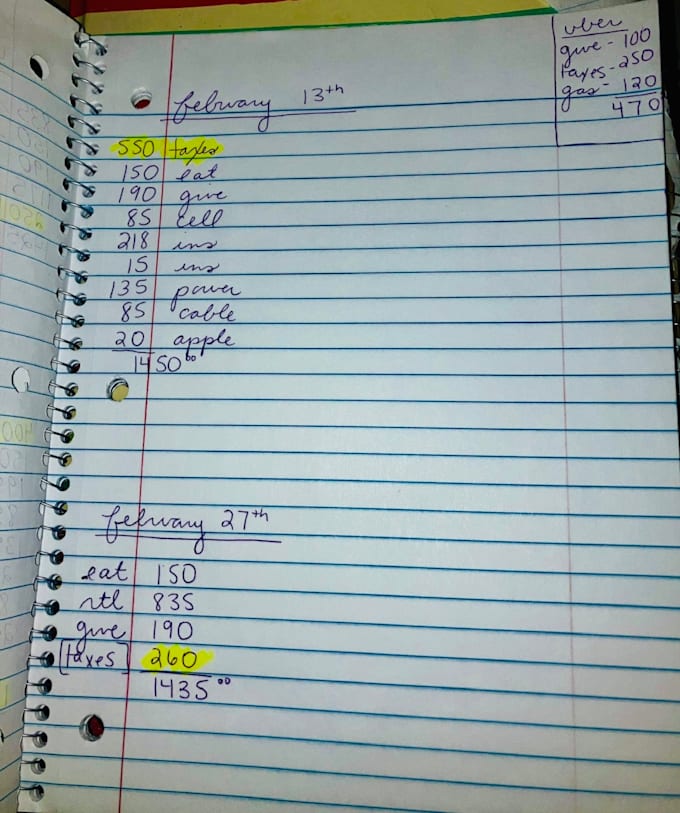 uber
give - 100
taxes - 250
gas - 120
470
february 13th
550 taxes
150 eat
190 give
85 cell
218 ins
15 ins
135 power
85 cable
20 apple
1450 00
february 27th
eat 150
rtl 835
give 190
[taxes] 260
1435 00